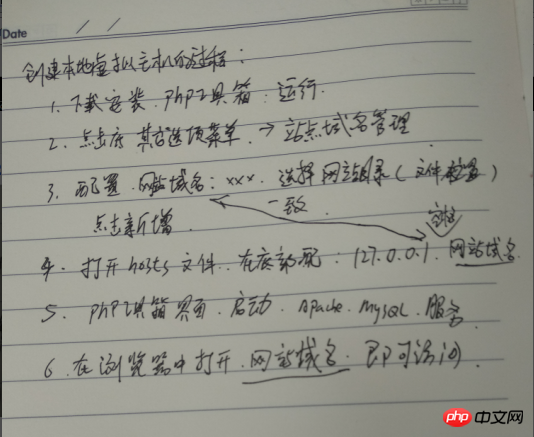 Date / /
创建本地虚拟主机的过程：
1. 下载安装. php工具箱. 运行.
2. 点击 其它选项菜单. → 站点域名管理
3. 配置. 网站域名：xxx. 选择网站目录（文件位置）
一致
点击新增.
4. 打开hosts文件. 在底部配：127.0.0.1. 网站域名
5. php工具箱界面. 启动. Apache. MySQL. 服务
6. 在浏览器中打开. 网站域名. 即可访问.
php 中文网